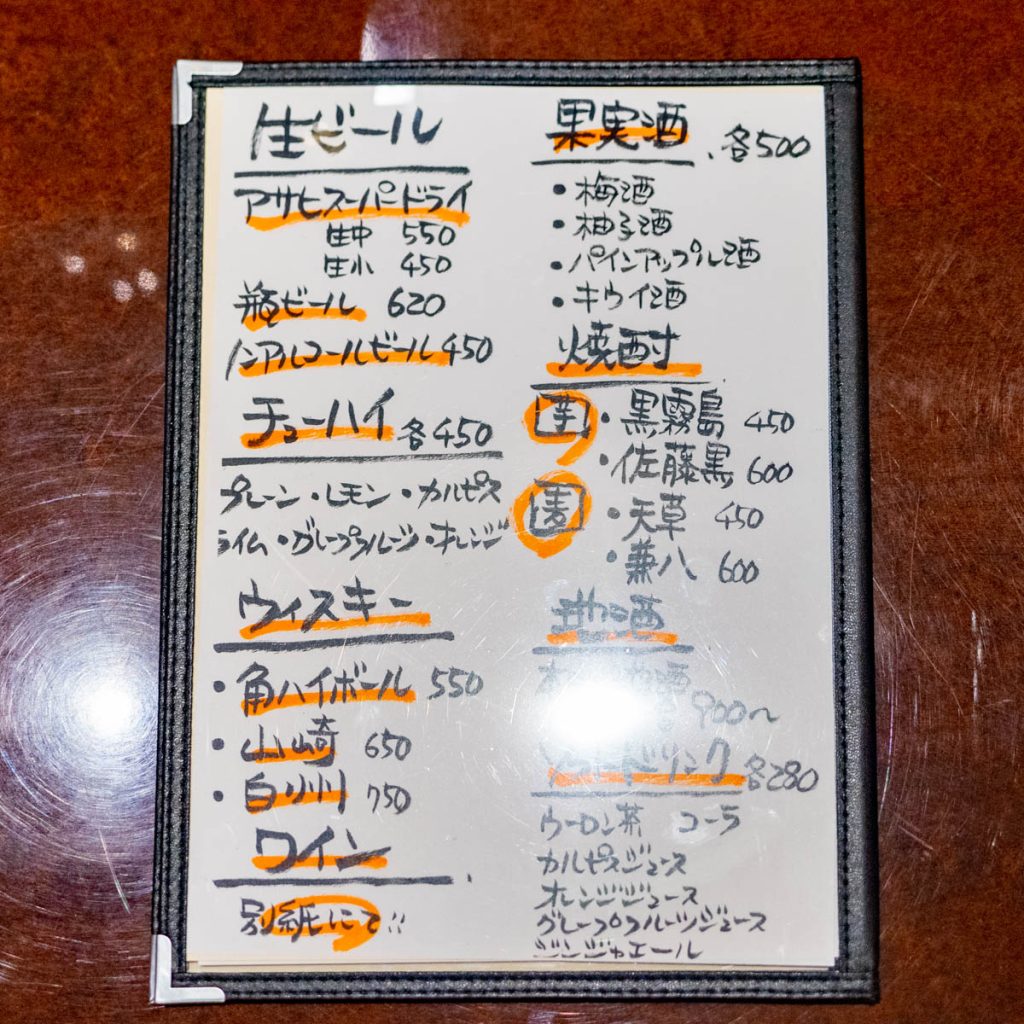 生ビール
アサヒスーパードライ
生中 550
生小 450
瓶ビール 620
ノンアルコールビール 450
チューハイ 各450
プレーン・レモン・カルピス
ライム・グレープフルーツ・オレンジ
ウィスキー
・角ハイボール 550
・山崎 650
・白州 750
ワイン
別紙にて!!
果実酒 、各500
・梅酒
・柚子酒
・パインアップル酒
・キウイ酒
焼酎
芋 ・黒霧島 450
・佐藤黒 600
麦 ・天草 450
・兼八 600
地酒
900〜
ソフトドリンク 各280
ウーロン茶 コーラ
カルピスジュース
オレンジジュース
グレープフルーツジュース
ジンジャエール